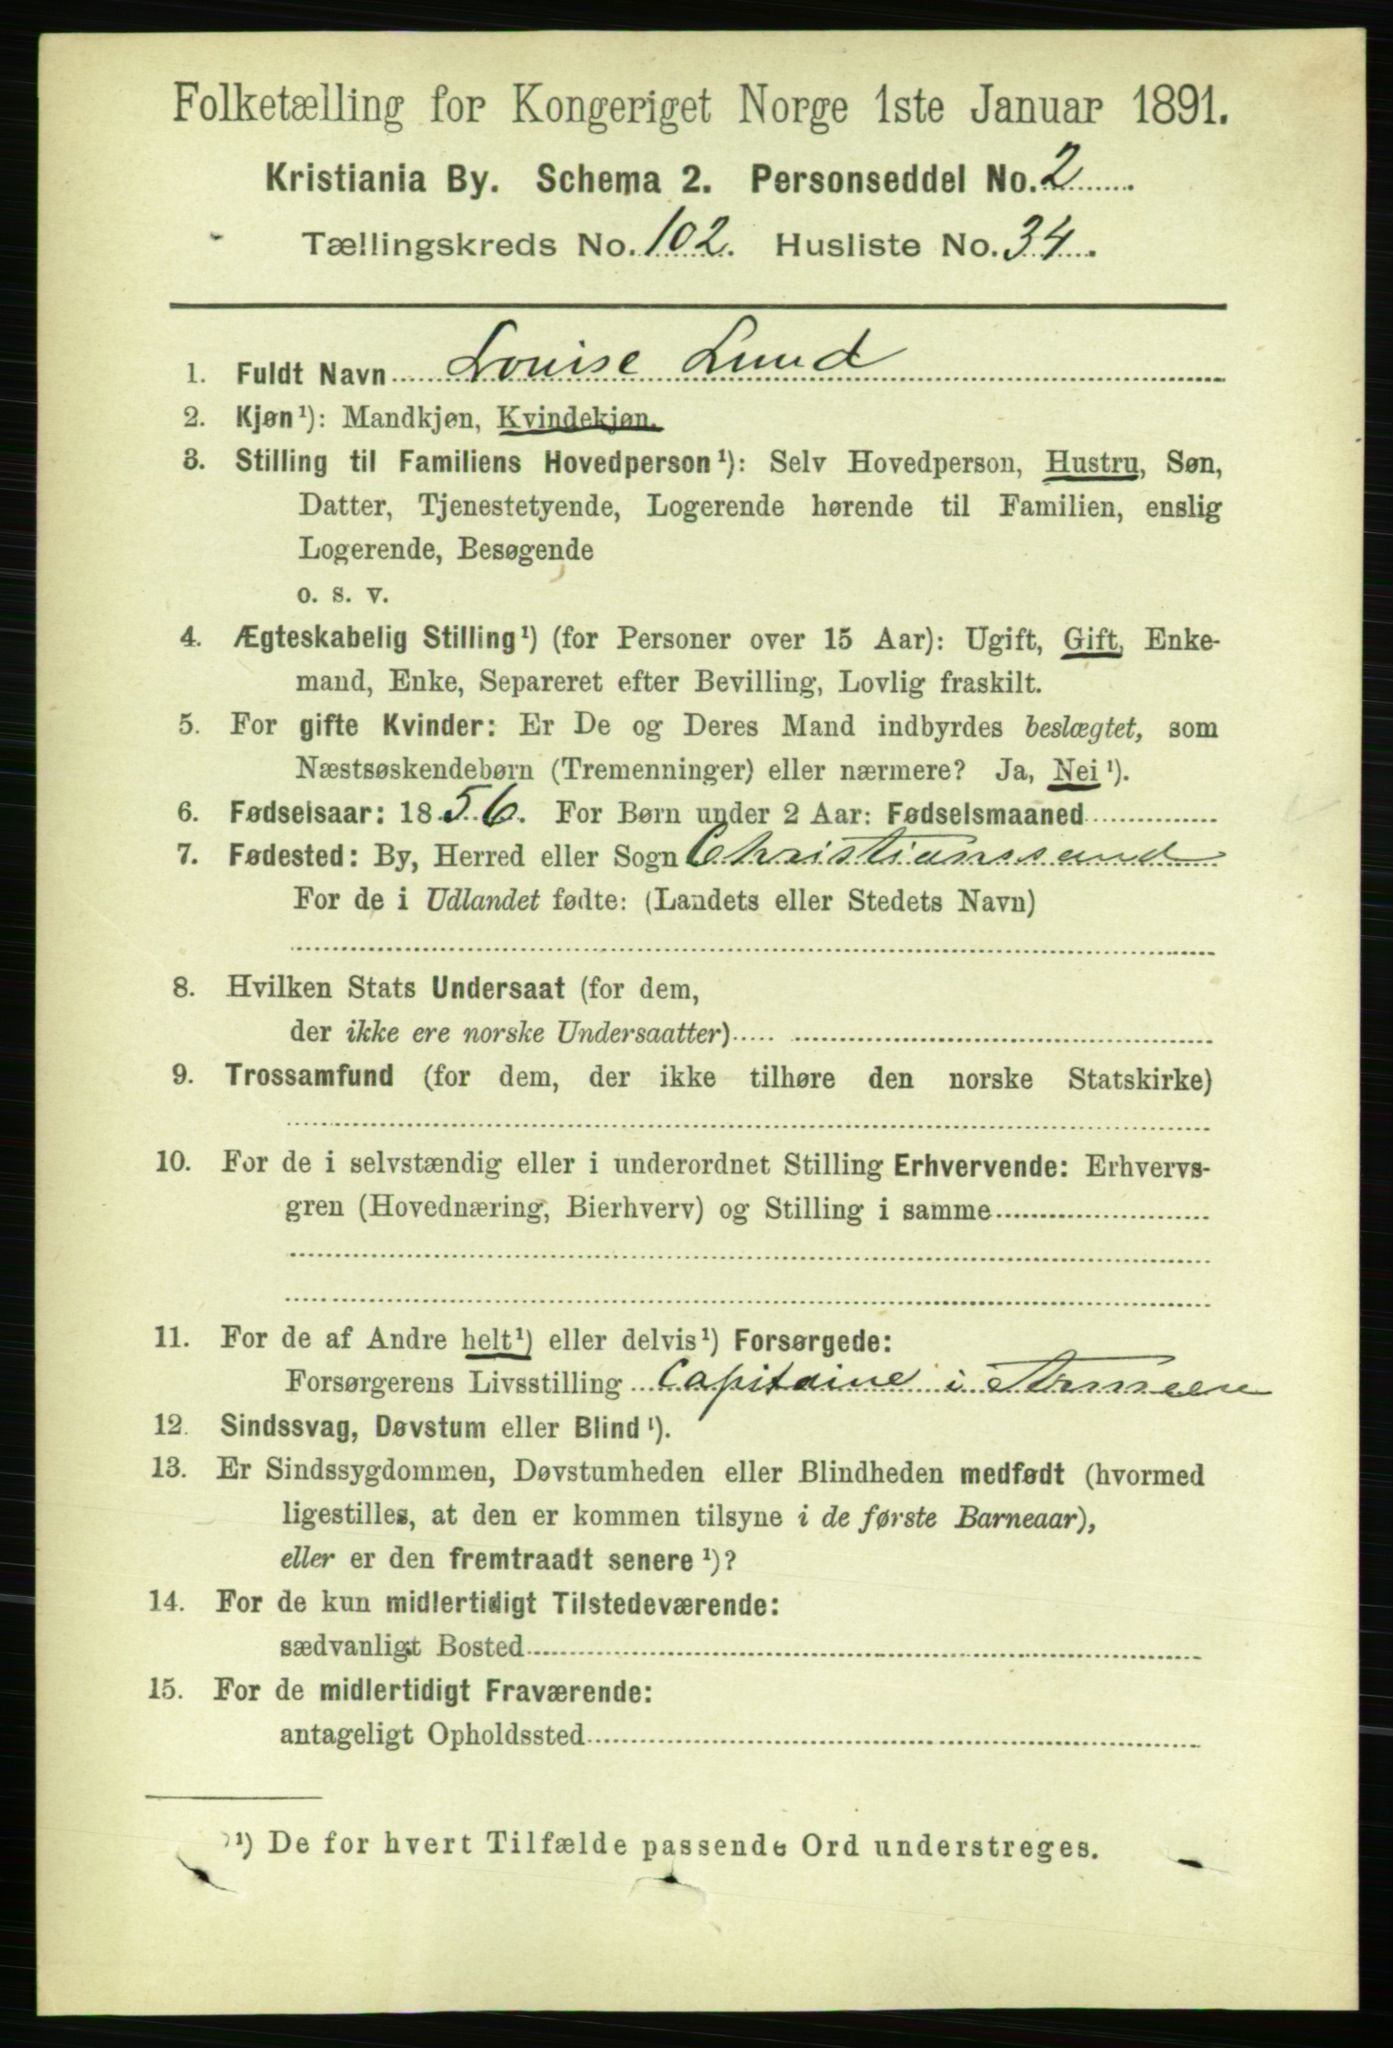 Folketælling for Kongeriget Norge 1ste Januar 1891.
Kristiania By. Schema 2. Personseddel No. 2
Tællingskreds No. 102. Husliste No. 34.
1. Fuldt Navn Louise Lund
2. Kjøn¹): Mandkjøn, Kvindekjøn.
3. Stilling til Familiens Hovedperson¹): Selv Hovedperson, Hustru, Søn,
Datter, Tjenestetyende, Logerende hørende til Familien, enslig
Logerende, Besøgende
o. s. v.
4. Ægteskabelig Stilling¹) (for Personer over 15 Aar): Ugift, Gift, Enke-
mand, Enke, Separeret efter Bevilling, Lovlig fraskilt.
5. For gifte Kvinder: Er De og Deres Mand indbyrdes beslægtet, som
Næstsøskendebørn (Tremenninger) eller nærmere? Ja, Nei¹).
6. Fødselsaar: 1856. For Børn under 2 Aar: Fødselsmaaned
7. Fødested: By, Herred eller Sogn Christianssand
For de i Udlandet fødte: (Landets eller Stedets Navn)
8. Hvilken Stats Undersaat (for dem,
der ikke ere norske Undersaatter)
9. Trossamfund (for dem, der ikke tilhøre den norske Statskirke)
10. For de i selvstændig eller i underordnet Stilling Erhvervende: Erhvervs-
gren (Hovednæring, Bierhverv) og Stilling i samme
11. For de af Andre helt¹) eller delvis¹) Forsørgede:
Forsørgerens Livsstilling Capitaine i Armeen
12. Sindssvag, Døvstum eller Blind¹).
13. Er Sindssygdommen, Døvstumheden eller Blindheden medfødt (hvormed
ligestilles, at den er kommen tilsyne i de første Barneaar),
eller er den fremtraadt senere¹)?
14. For de kun midlertidigt Tilstedeværende:
sædvanligt Bosted
15. For de midlertidigt Fraværende:
antageligt Opholdssted
¹) De for hvert Tilfælde passende Ord understreges.